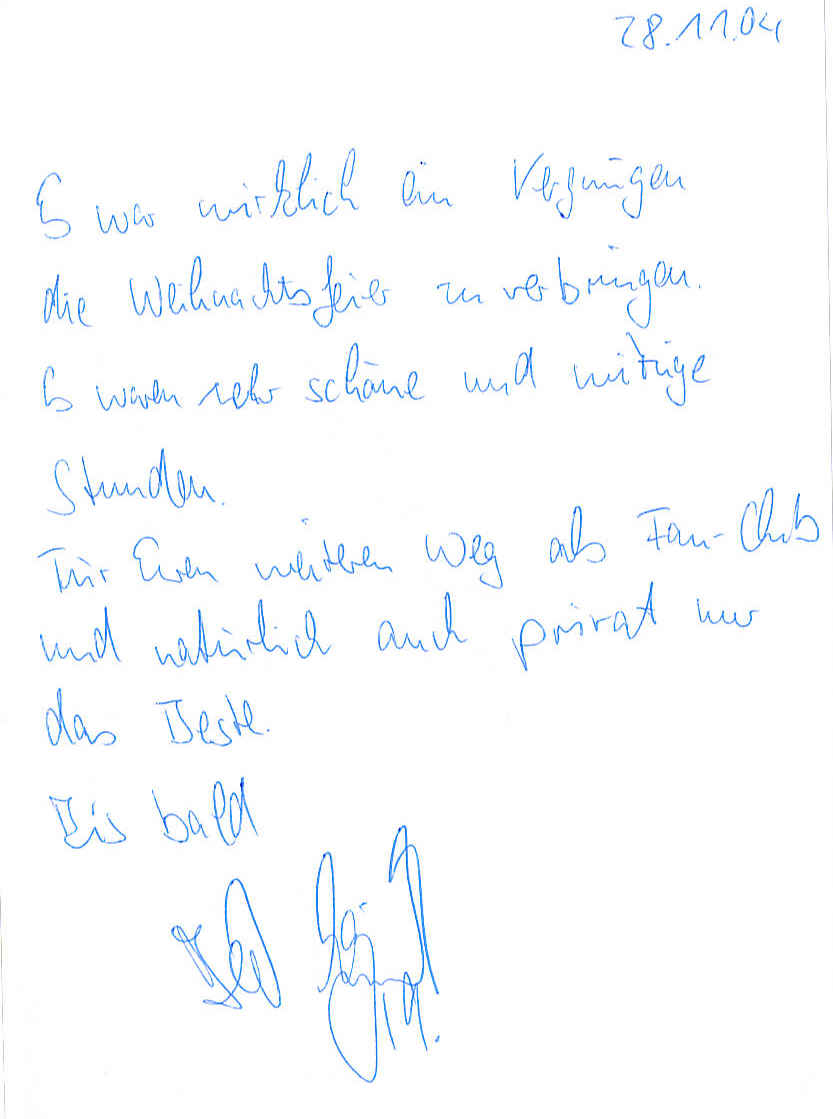 28.11.04
Es war wirklich ein Vergnügen
die Weihnachtsfeier zu verbringen.
Es waren sehr schöne und witzige
Stunden.
Für Euren weiteren Weg als Fan-Club
und natürlich auch privat nur
das Beste.
Bis bald